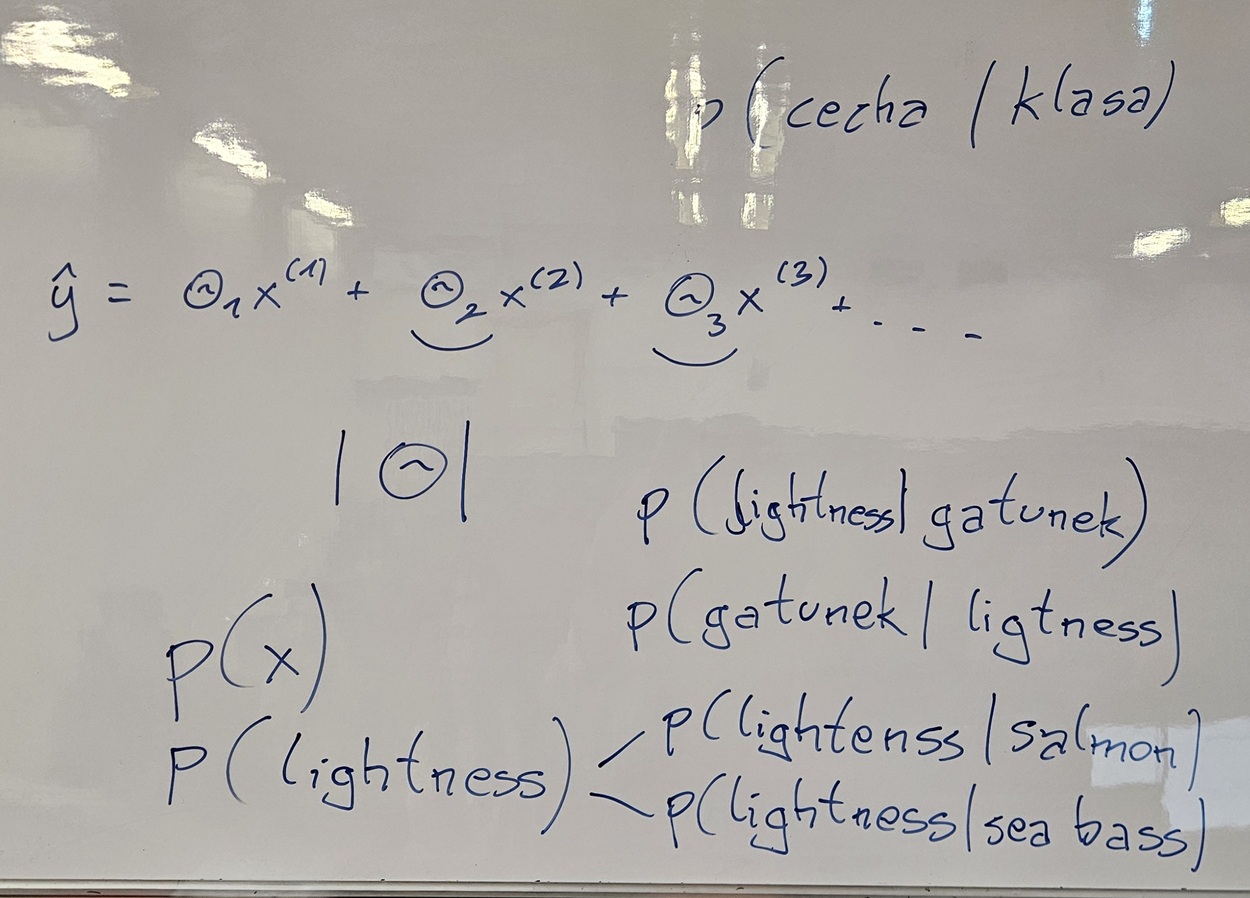 p(cecha | klasa)
ŷ = Θ₁x⁽¹⁾ + Θ₂x⁽²⁾ + Θ₃x⁽³⁾ + . - -
|Θ|
p(lightness| gatunek)
p(gatunek | ligtness)
p(x)
p(lightenss | salmon)
p(lightness)
p(lightness | sea bass)